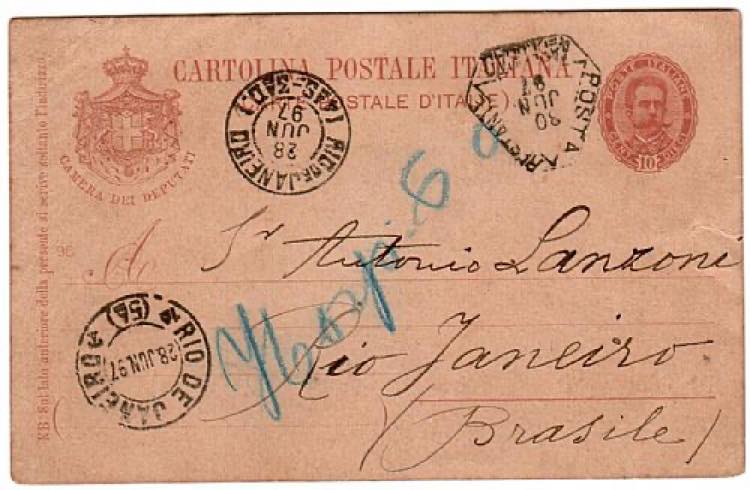 CARTOLINA POSTALE ITALIANA
(CARTE POSTALE D'ITALIE)
CAMERA DEI DEPUTATI
POSTE ITALIANE
CENT. 10 DIECI
RIO DE JANEIRO
28
JUN
97
(4AS-3AD.)
POSTA RESTANTE
30
JUN
97
NB: Sul lato anteriore della presente si scrive soltanto l'indirizzo.
96
A Sr Antonio Lanzoni
Rio Janeiro
(Brasile)
RIO DE JANEIRO
28 JUN. 97
1a (5A)